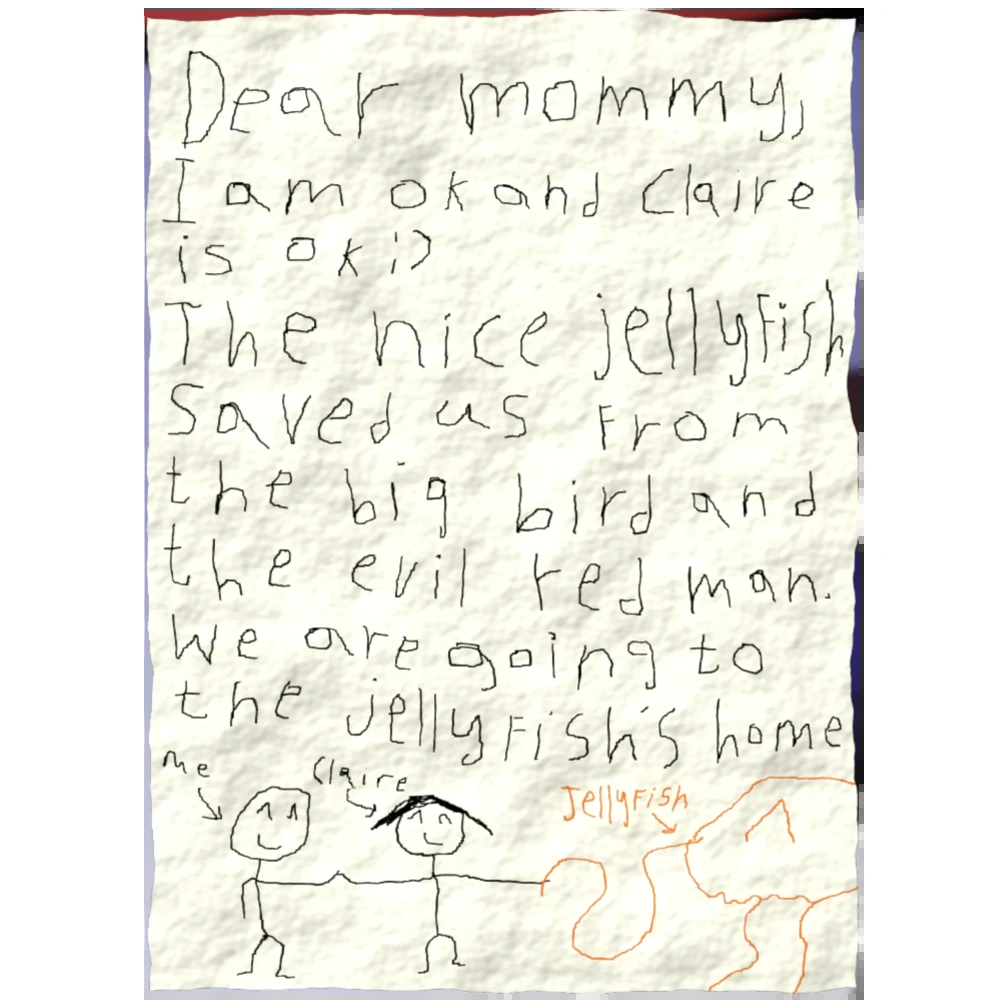 Dear mommy,
I am ok and Claire
is ok :)
The nice jellyfish
saved us from
the big bird and
the evil red man.
We are going to
the jellyfish's home
Me
Claire
Jellyfish